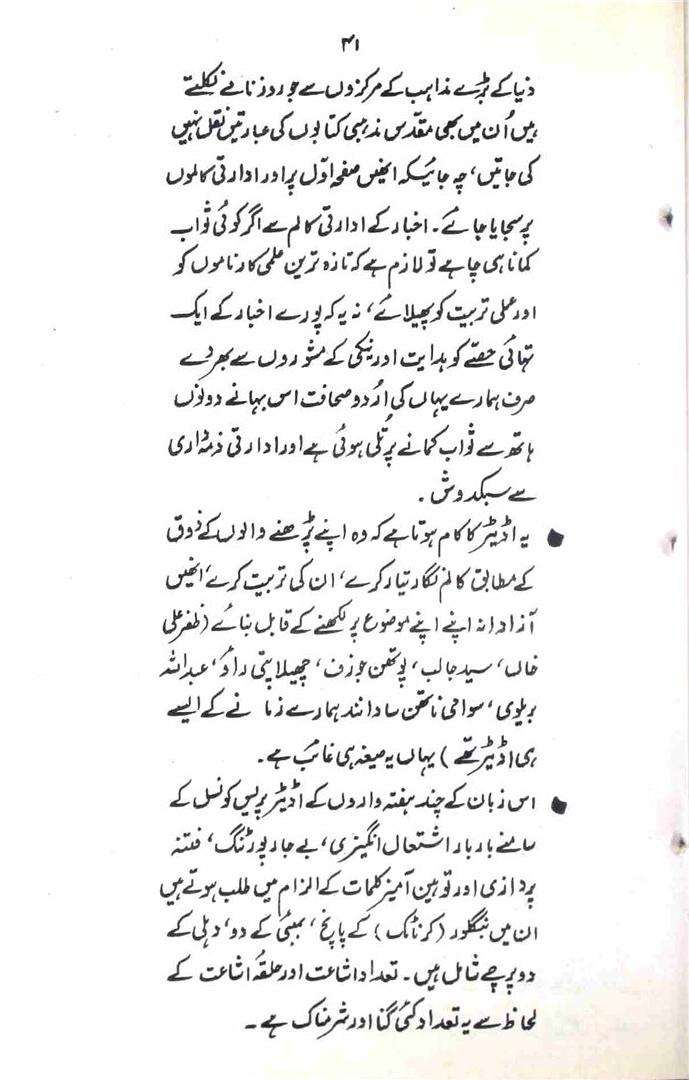 ۴۱
دنیا کے بڑے مذاہب کے مرکزوں سے جو روزنامے نکلتے
ہیں اُن میں بھی مقدّس مذہبی کتابوں کی عبارتیں نقل نہیں
کی جاتیں، چہ جائیکہ انھیں صفحۂ اوّل پر اور ادارتی کالموں
پر سجایا جائے۔ اخبار کے ادارتی کالم سے اگر کوئی ثواب
کمانا ہی چاہے تو لازم ہے کہ تازہ ترین علمی کارناموں کو
اور عملی تربیت کو پھیلائے، نہ یہ کہ پورے اخبار کے ایک
تہائی حصّے کو ہدایت اور نیکی کے مشوروں سے بھر دے
صرف ہمارے یہاں کی اُردو صحافت اس بہانے دونوں
ہاتھ سے ثواب کمانے پر تُلی ہوئی ہے اور ادارتی ذمّہ داری
سے سبکدوش۔
● یہ اڈیٹر کا کام ہوتا ہے کہ وہ اپنے پڑھنے والوں کے ذوق
کے مطابق کالم نگار تیار کرے، ان کی تربیت کرے، انھیں
آزادانہ اپنے اپنے موضوع پر لکھنے کے قابل بنائے (ظفر علی
خاں، سید جالب، پوتھن جوزف، چھیلا پتی راؤ، عبداللہ
بریلوی، سوامی ناتھن سادانند ہمارے زمانے کے ایسے
ہی اڈیٹر تھے) یہاں یہ صیغہ ہی غائب ہے۔
● اس زبان کے چند ہفتہ واروں کے اڈیٹر پریس کونسل کے
سامنے بار بار اشتعال انگیزی، بے جا رپورٹنگ، فتنہ
پردازی اور توہین آمیز کلمات کے الزام میں طلب ہوتے ہیں
ان میں بنگلور (کرناٹک) کے پانچ، بمبئی کے دو، دہلی کے
دو پرچے شامل ہیں۔ تعداد اشاعت اور حلقۂ اشاعت کے
لحاظ سے یہ تعداد کئی گنا اور شرمناک ہے۔